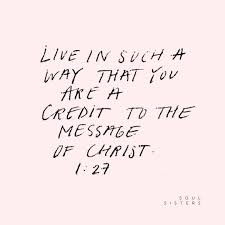 LIVE IN SUCH A
WAY THAT YOU
ARE A
CREDIT TO THE
MESSAGE
OF CHRIST.
1:27
SOUL
SISTERS